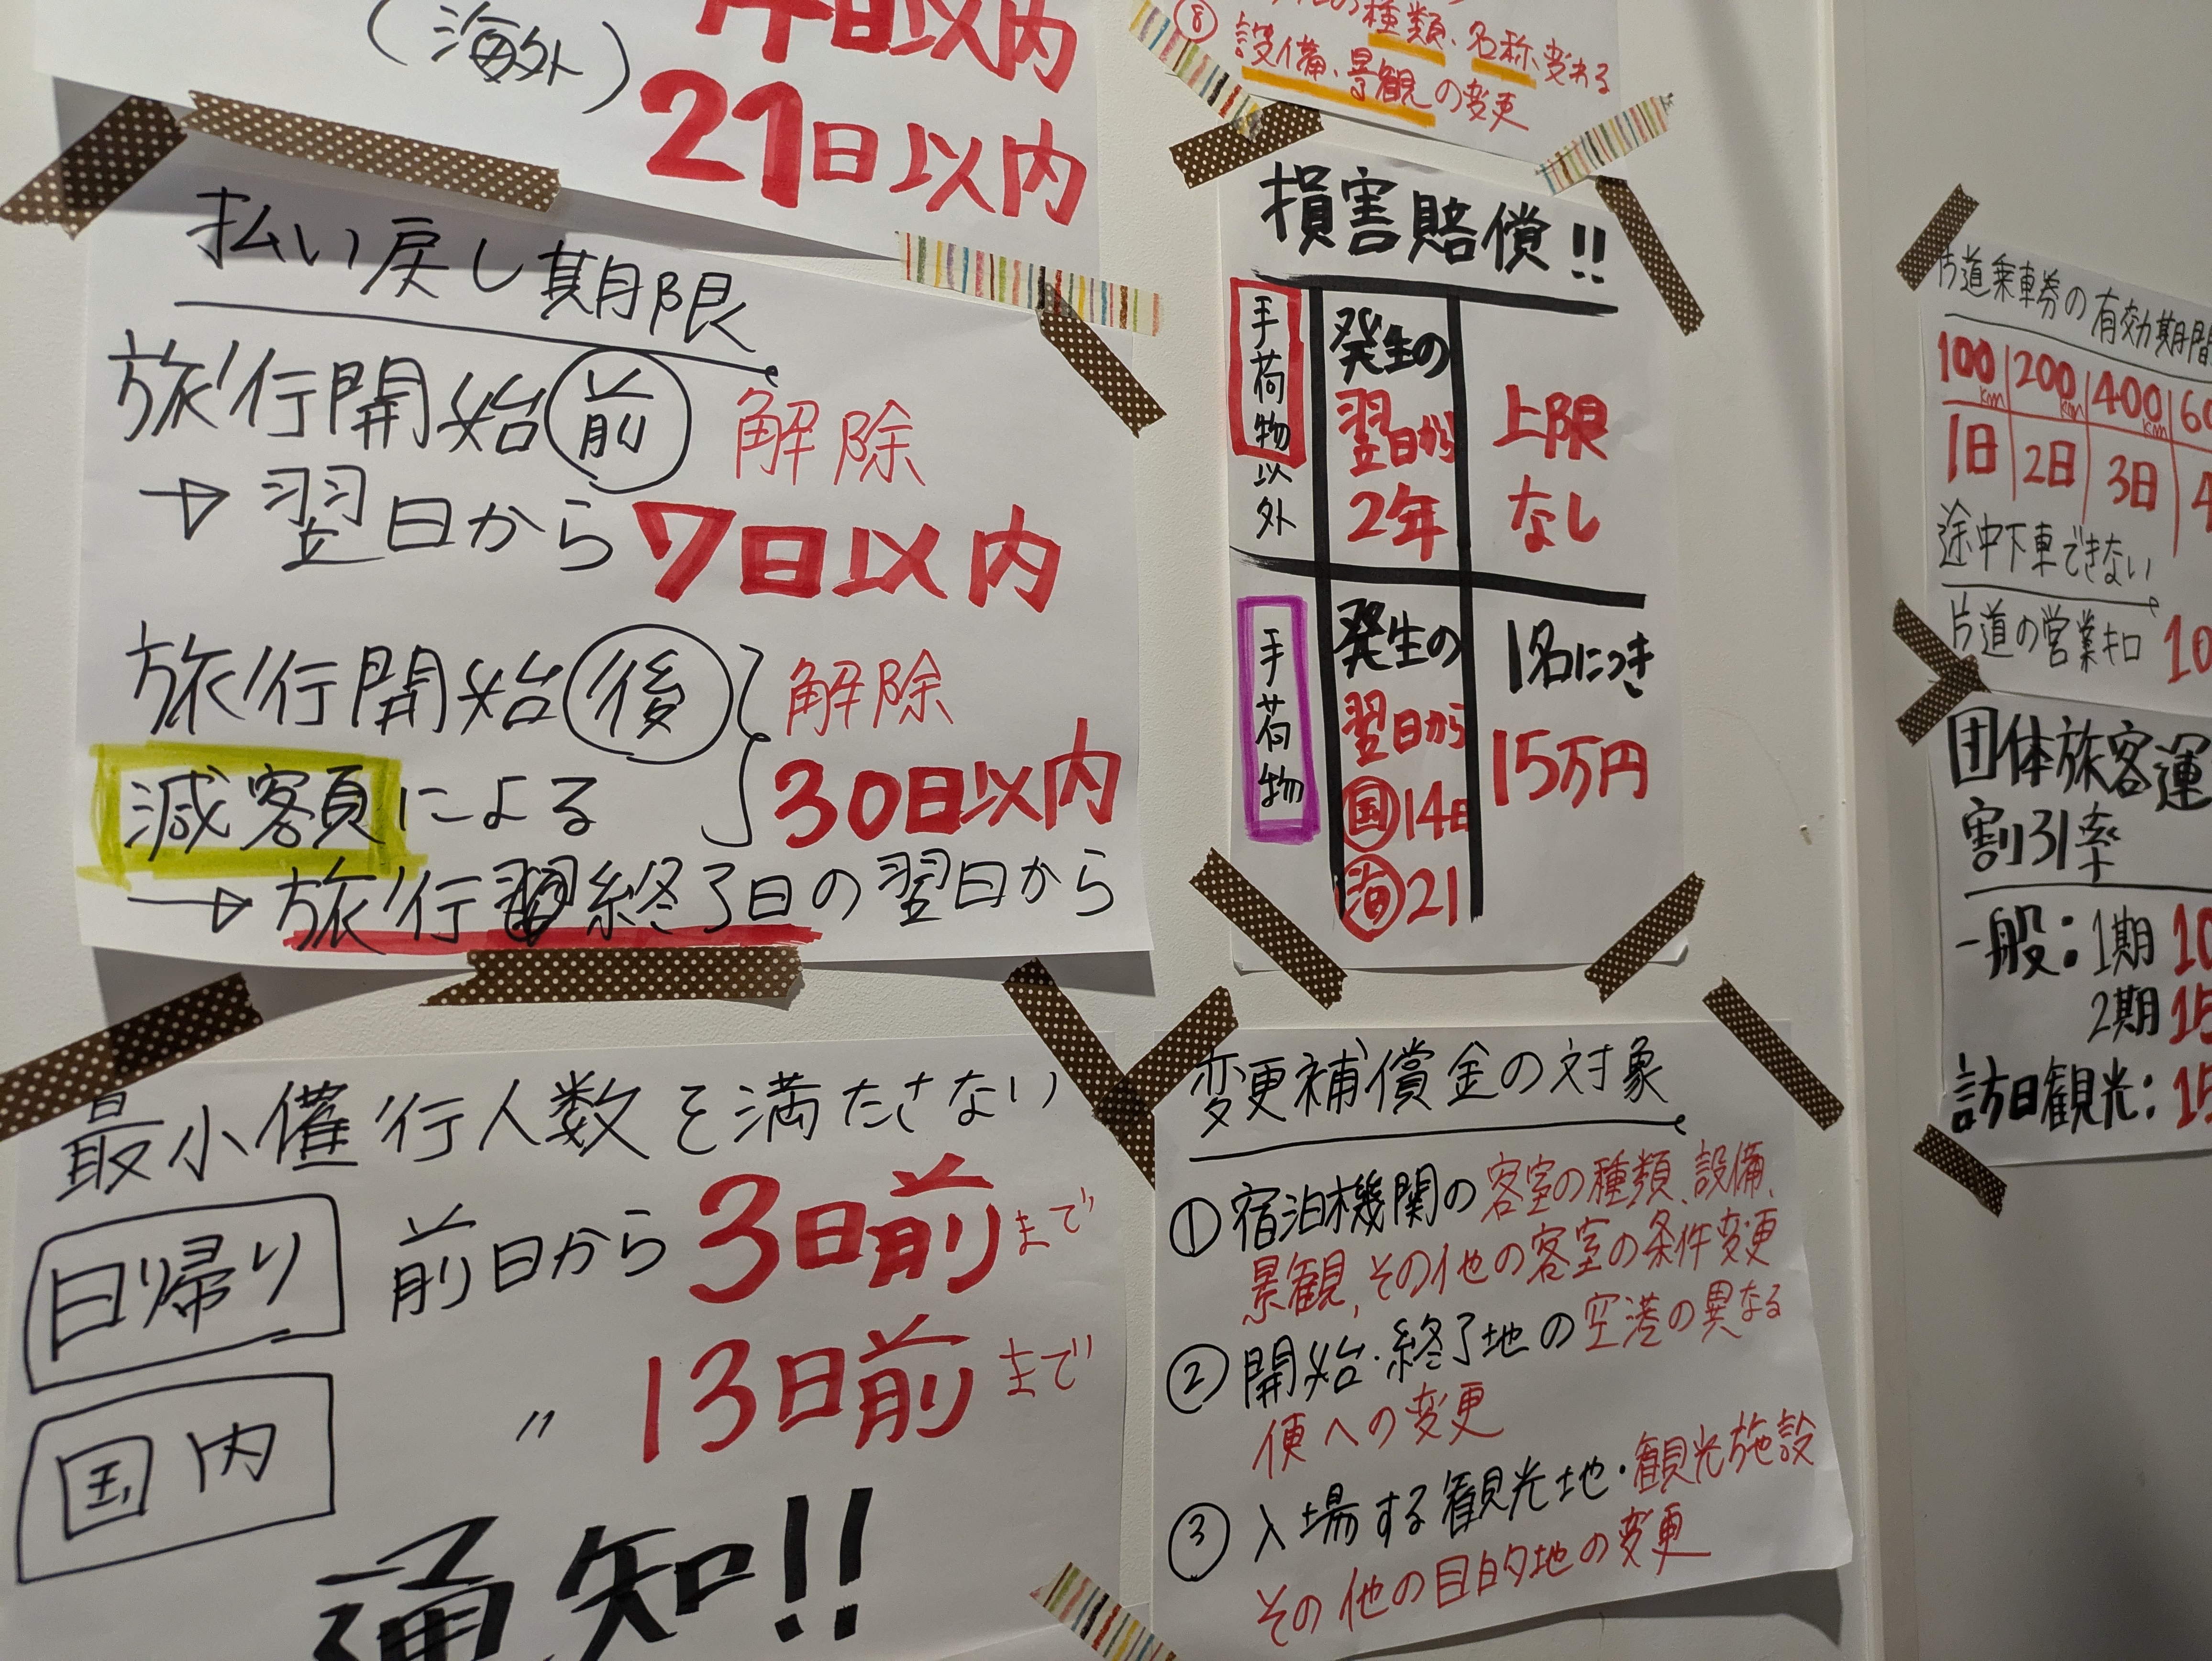 (海外)
21日以内
払い戻し期限
旅行開始前 解除
→翌日から7日以内
旅行開始後 解除
減客頁による 30日以内
→旅行終了日の翌日から
最小催行人数を満たさない
日帰り 前日から3日前まで
国内 〃 13日前まで
通知!!
⑧
種類、名称変わる
設備、景観の変更
損害賠償!!
手荷物以外 発生の翌日から2年 上限なし
手荷物 発生の翌日から 国14日 海21 1名につき15万円
変更補償金の対象
①宿泊機関の客室の種類、設備、
景観、その他の客室の条件変更
②開始・終了地の空港の異なる
便への変更
③入場する観光地・観光施設
その他の目的地の変更
片道乗車券の有効期間
100km 200km 400km
1日 2日 3日
途中下車できない
片道の営業キロ
団体旅客運
割引率
一般:1期
2期
訪日観光: